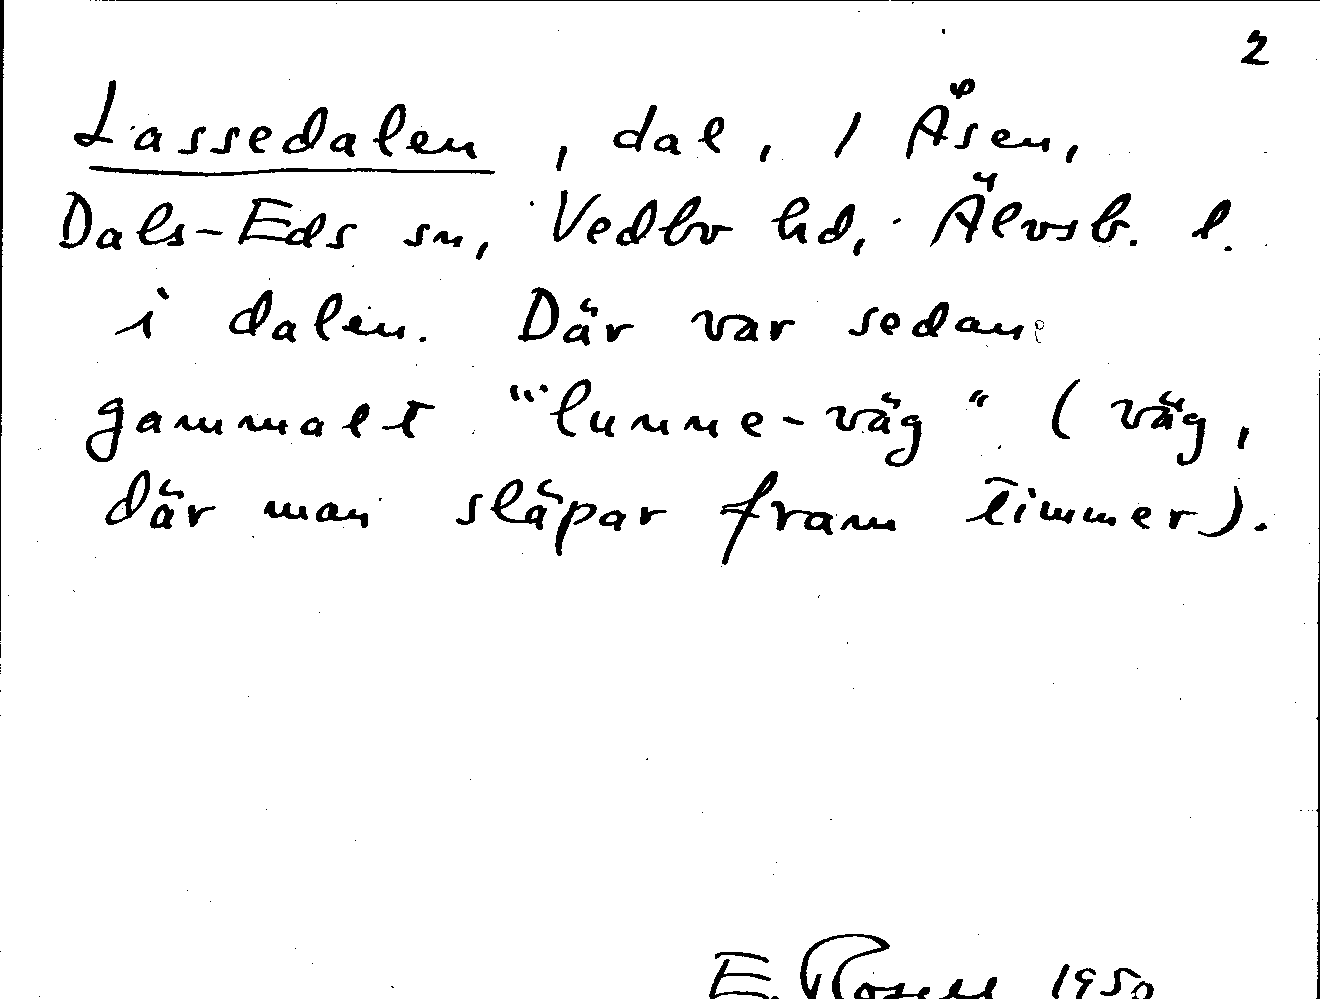 2
Lassedalen, dal, 1 Åsen,
Dals-Eds sn, Vedbo hd, Älvsb. l.
i dalen. Där var sedan
gammalt "lunne-väg" (väg,
där man släpar fram timmer).
E. Rosell 1950